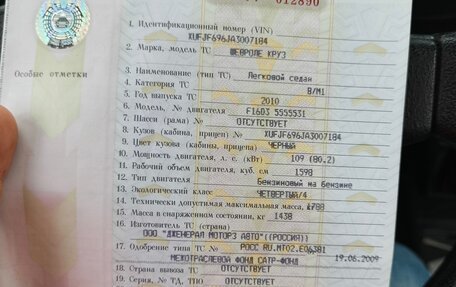 012890
1. Идентификационный номер (VIN)
XUFJF696JA3007184
2. Марка, модель ТС ШЕВРОЛЕ КРУЗ
Особые отметки
3. Наименование (тип ТС) Легковой седан
4. Категория ТС B/M1
5. Год выпуска ТС 2010
6. Модель, № двигателя F16D3 5555531
7. Шасси (рама) № ОТСУТСТВУЕТ
8. Кузов (кабина, прицеп) № XUFJF696JA3007184
9. Цвет кузова (кабины, прицепа) ЧЕРНЫЙ
10. Мощность двигателя, л. с. (кВт) 109 (80.2)
11. Рабочий объем двигателя, куб. см 1598
12. Тип двигателя Бензиновый на бензине
13. Экологический класс ЧЕТВЕРТЫЙ/4
14. Технически допустимая максимальная масса, кг 1788
15. Масса в снаряженном состоянии, кг 1438
16. Изготовитель ТС (страна)
ООО "ДЖЕНЕРАЛ МОТОРЗ АВТО"((РОССИЯ))
17. Одобрение типа ТС № РОСС RU.MT02.E06381
19.06.2009
МЕЖОТРАСЛЕВОЙ ФОНД САТР-ФОНД
18. Страна вывоза ТС ОТСУТСТВУЕТ
19. Серия, № ТД, ТПО ОТСУТСТВУЕТ